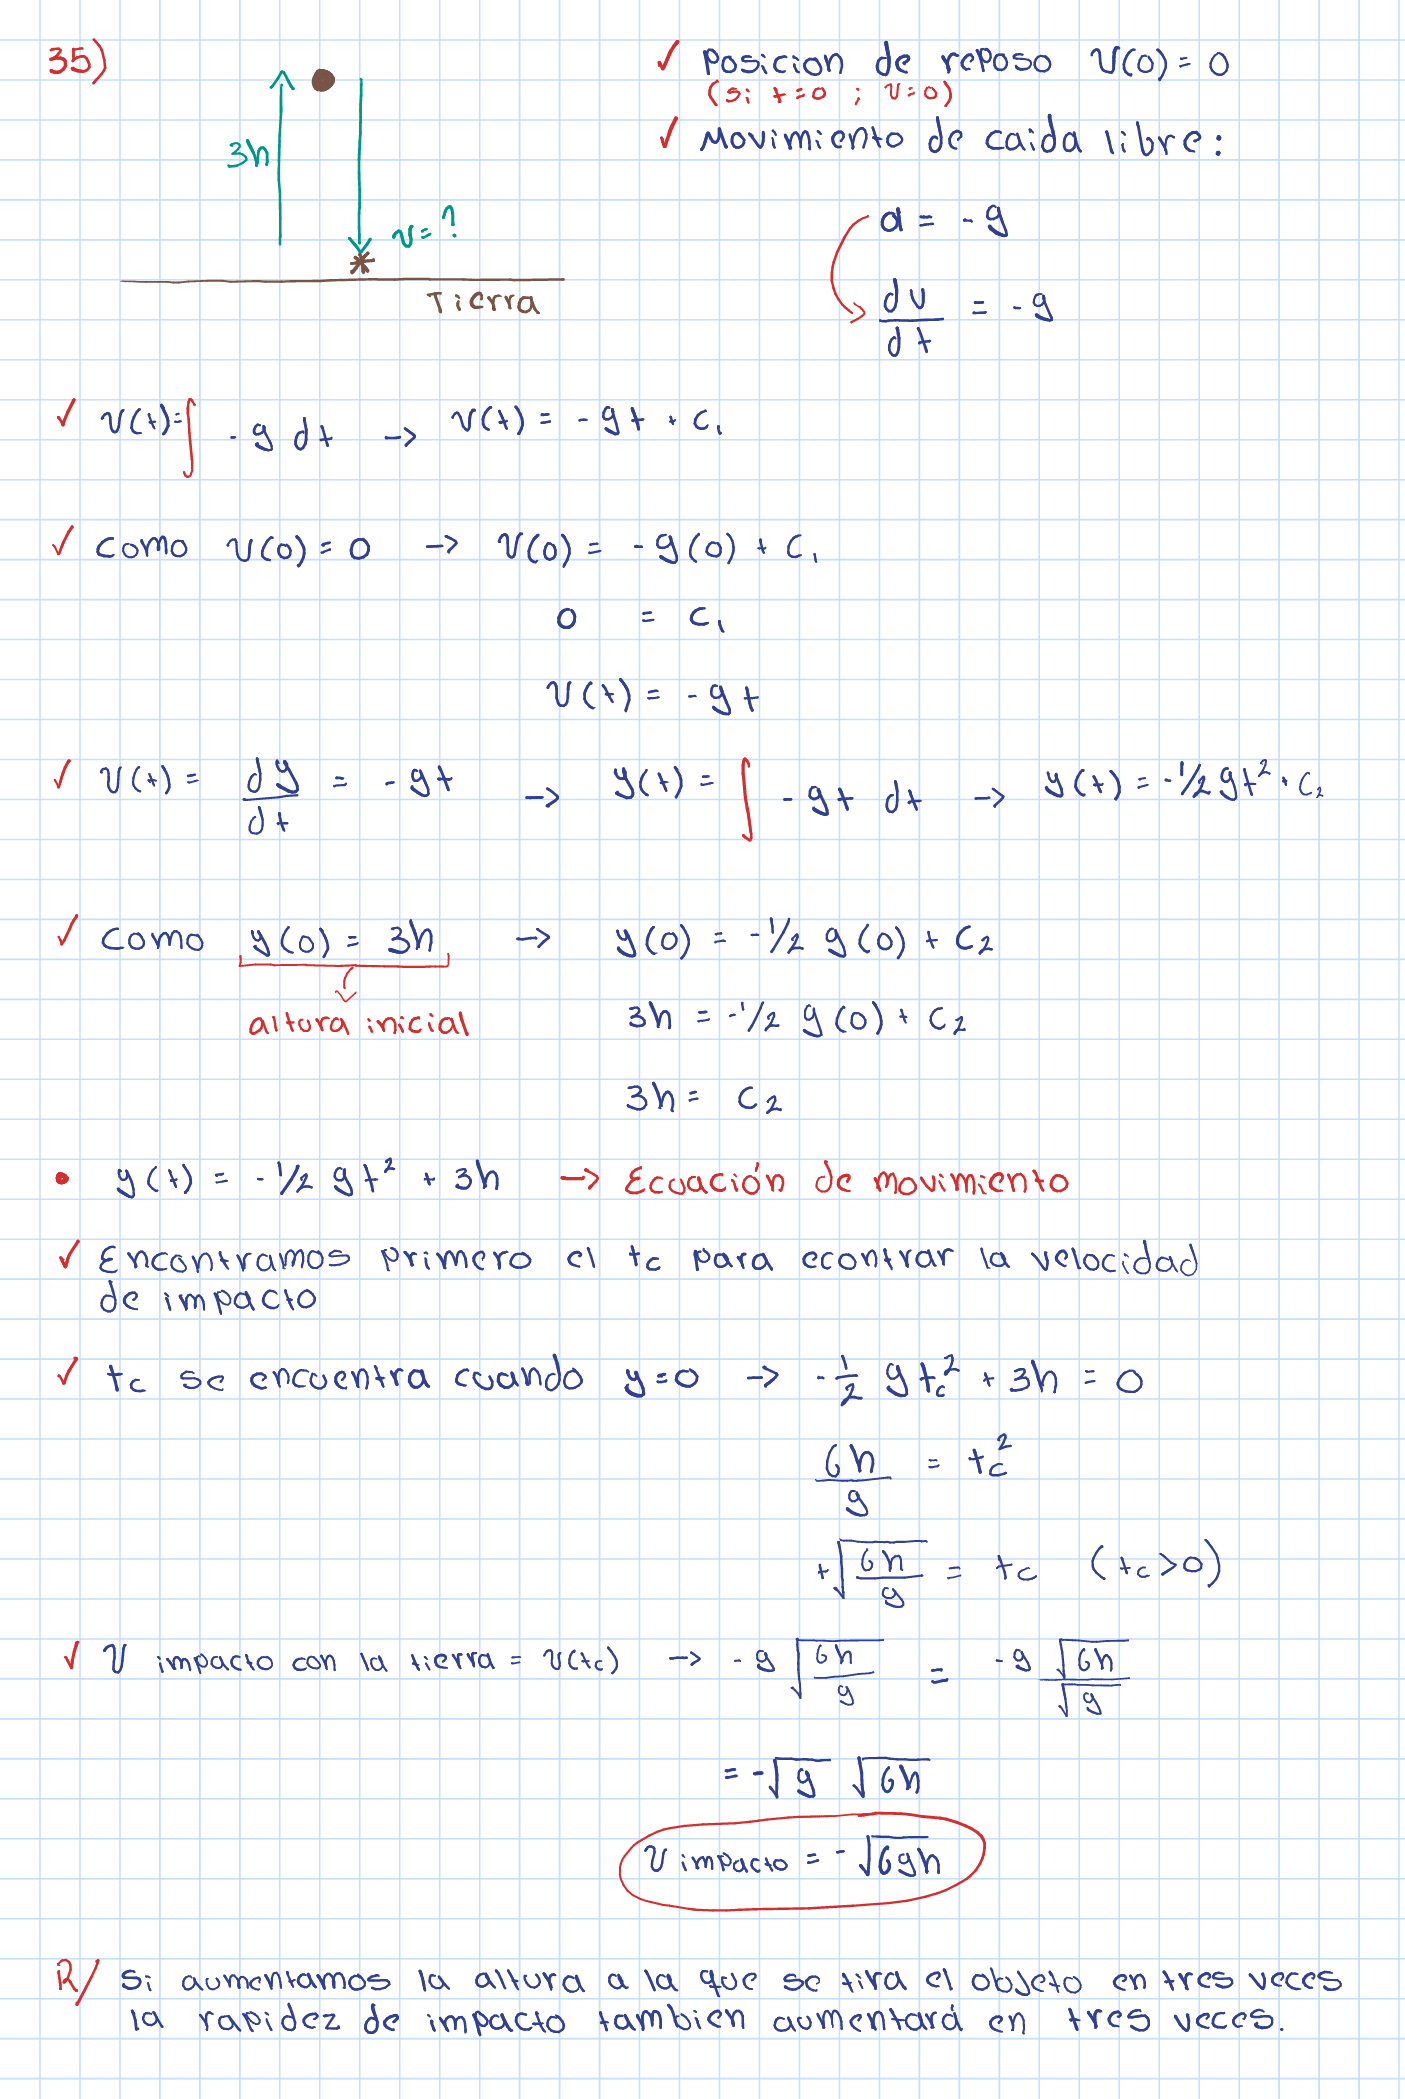 35)
3h
v=?
Tierra
✓ Posicion de reposo v(0) = 0
(si t=0 ; v=0)
✓ Movimiento de caida libre:
a = -g
dv/dt = -g
✓ v(t)=∫ -g dt → v(t) = -gt + c₁
✓ Como v(0) = 0 → v(0) = -g(0) + c₁
0 = c₁
v(t) = -gt
✓ v(t) = dy/dt = -gt → y(t) = ∫ -gt dt → y(t) = -1/2 gt² + c₂
✓ Como y(0) = 3h → y(0) = -1/2 g(0) + c₂
altura inicial
3h = -1/2 g(0) + c₂
3h = c₂
• y(t) = -1/2 gt² + 3h → Ecuación de movimiento
✓ Encontramos primero el tc para econtrar la velocidad
de impacto
✓ tc se encuentra cuando y=0 → -1/2 g tc² + 3h = 0
6h/g = tc²
+√(6h/g) = tc (tc>0)
✓ v impacto con la tierra = v(tc) → -g √(6h/g) = -g √6h/√g
= -√g √6h
v impacto = -√6gh
R/ Si aumentamos la altura a la que se tira el objeto en tres veces
la rapidez de impacto tambien aumentará en tres veces.